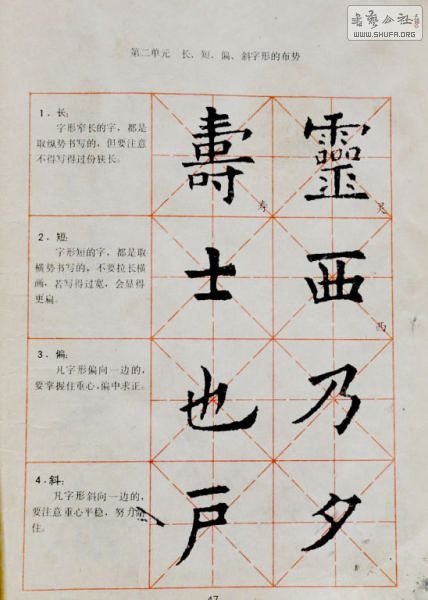 书艺公社
WWW.SHUFA.ORG
第二单元 长、短、偏、斜字形的布势
1．长：
字形窄长的字，都是
取纵势书写的，但要注意
不得写得过份狭长。
壽 靈
寿 灵
2．短：
字形短的字，都是取
横势书写的，不要拉长横
画，若写得过宽，会显得
更扁。
士 西
西
3．偏：
凡字形偏向一边的，
要掌握住重心，偏中求正。
也 乃
4．斜：
凡字形斜向一边的，
要注意重心平稳，努力
住。
戸 夕
47